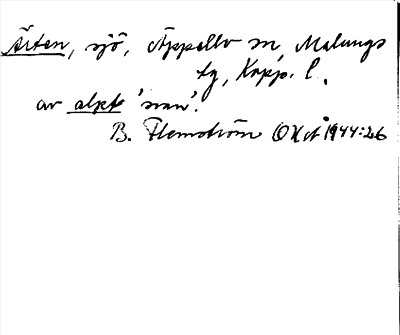 Ärten, sjö, Äppelbo sn, Malungs
tg, Kopp. l.
av alpt 'svan'.
B. Flemström OUÅ 1944:26